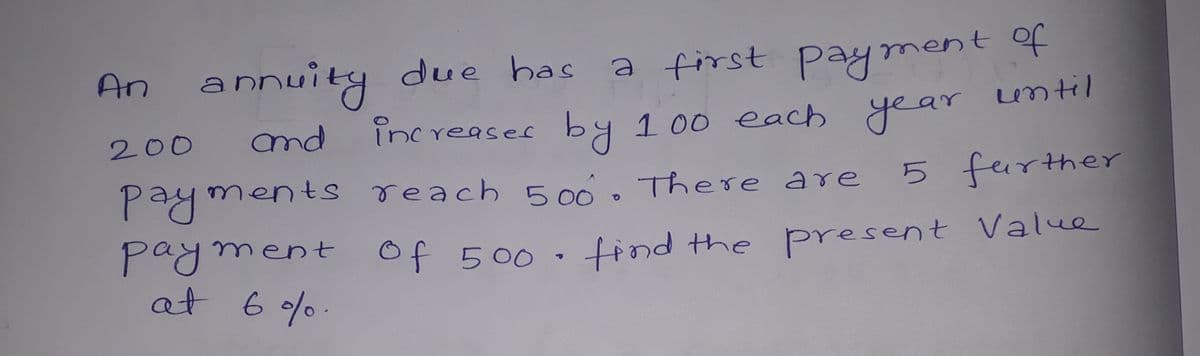 An annuity due has a first payment of
200 and increases by 100 each year until
payments reach 500. There are 5 further
payment of 500. find the present Value
at 6%.